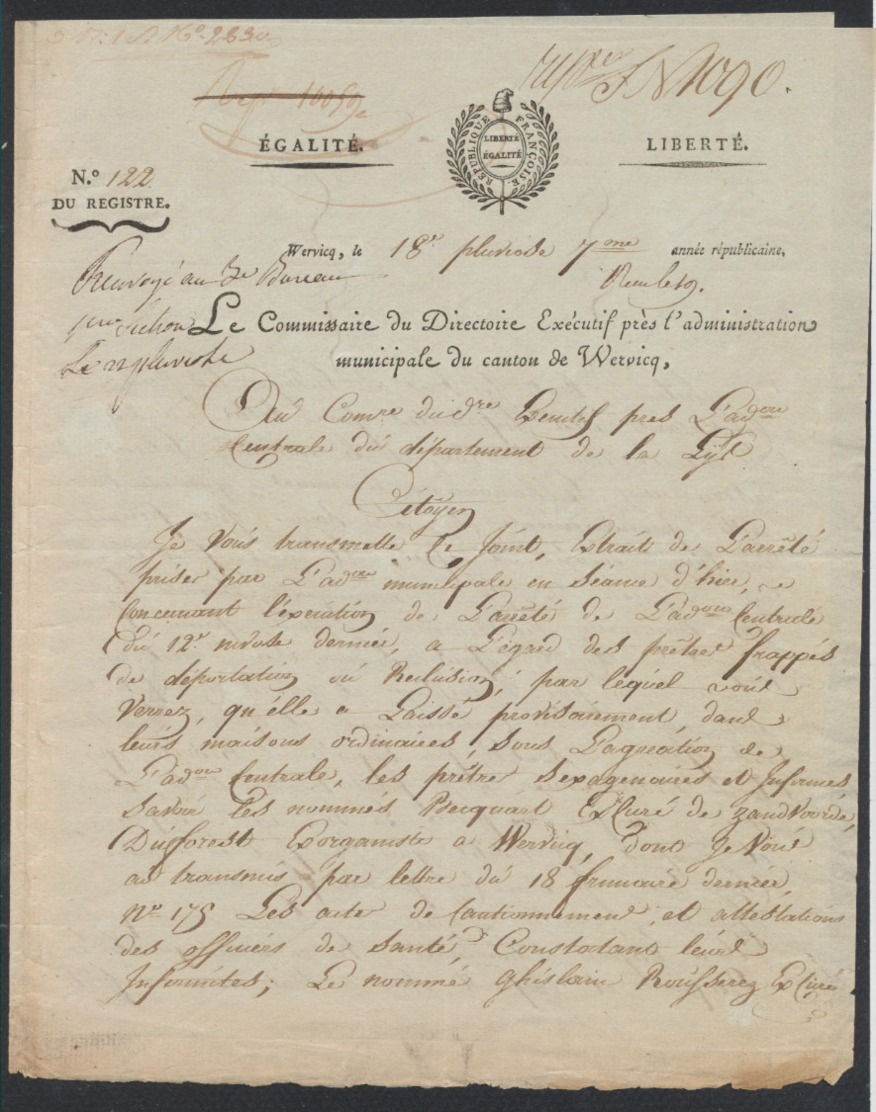 N.º 2630
N 1090.
ÉGALITÉ.
LIBERTÉ.
RÉPUBLIQUE FRANÇOISE.
LIBERTÉ
ÉGALITÉ
N.º 122
DU REGISTRE.
Wervicq, le 18e pluviose 7me année républicaine.
Renvoyé au 3e Bureau
Le 22 pluviose
Le Commissaire du Directoire Exécutif près l'administration
municipale du canton de Wervicq,
Au Comre du dre Exécutif pres L'adon
Centrale du département de la Lys
Citoyen
Je Vous transmette Ce Joint, Extrait de L'arrêté
priser par L'adon municipale en Séance d'hier,
Concernant l'éxécution de L'arrêté de L'adon Centrale
Du 12e nivose dernier, a L'égard des prêtres frappés
de déportation ou Reclusion, par lequel vous
Verrez, qu'elle a Laissé provisoirement, dans
leurs maisons ordinaires, Sous L'agreation de
L'adon Centrale, les prêtres Sexagenaires et Infirmes,
Savoir Les nommés Becquart Ex Curé de Zandvoorde,
Dufforest Exorganiste a Wervicq, dont Je Vous
ai transmis par lettre du 18 frimaire dernier
Nº 175 Les acte de Cautionnement, et attestations
des officiers de Santé, Constatant leurs
Infirmités; Le nommé Ghislain Rousserez Ex Curé